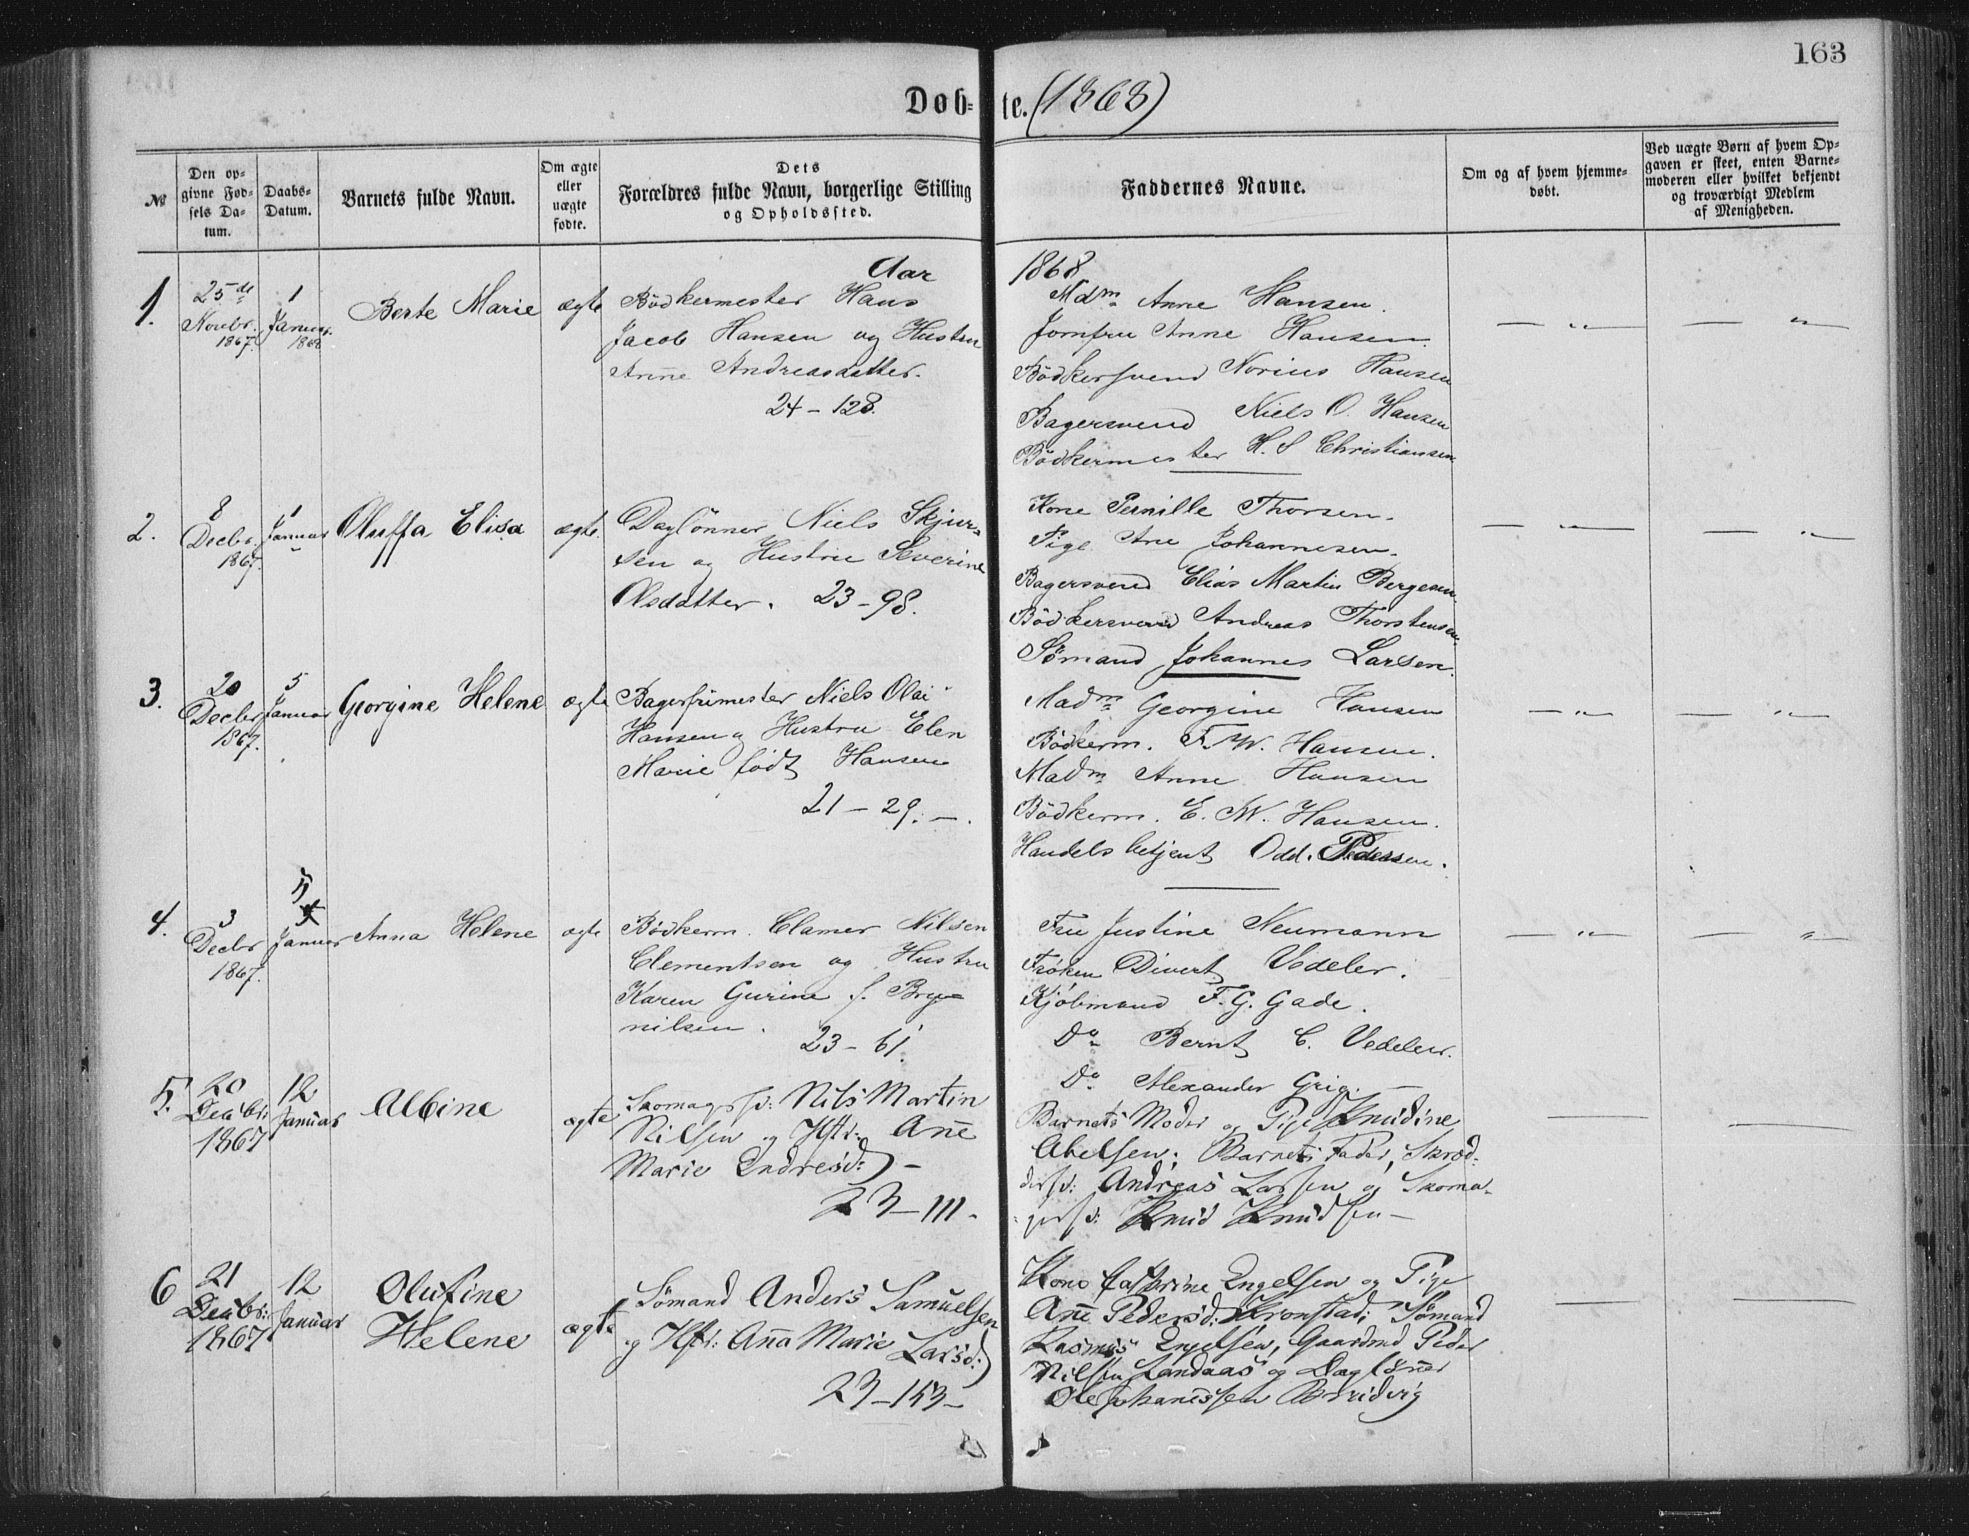 163
Døb-te. (1868)
№
Den opgivne Fødsels Datum.
Daabs-Datum.
Barnets fulde Navn.
Om ægte eller uægte fødte.
Dets Forældres fulde Navn, borgerlige Stilling og Opholdssted.
Faddernes Navne.
Om og af hvem hjemmedøbt.
Ved uægte Børn af hvem Opgaven er skeet, enten Barnemoderen eller hvilket bekjendt og troværdigt Medlem af Menigheden.
Aar 1868
1.
25de
Novbr.
1867.
1
Januar
1868
Berte Marie
ægte
Bødkermester Hans
Jacob Hansen og Hustru
Anne Andreasdatter.
24 - 128.
Mdm Anne Hansen.
Jomfru Anne Hansen.
Bødkersvend Norius Hansen
Bagersvend Niels O. Hansen
Bødkermester H. S Christiansen
— „
— „
2.
8
Decbr.
1867.
1
Januar
Oluffa Elisa
ægte.
Daglønner Niels Skjur-
sen og Hustru Severine
Olsdatter. 23-98.
Kone Pernille Thorsen.
Pige Ane Johannesen.
Bagersvend Elias Martin Bergesen.
Bødkersvend Andreas Thorstensen
Sømand Johannes Larsen.
— „ —
— „
3.
20
Decbr
1867.
5
Januar
Georgine Helene
ægte
Bagerfrimester Niels Olai
Hansen og Hustru Elen
Marie født Hansen
21 - 29. -.
Madm Georgine Hansen
Bødkerm. F. W. Hansen.
Madm Anne Hansen
Bødkerm. E. W. Hansen.
Handelsbetjent Odd. Pedersen.
— „
— „
4.
3
Decbr
1867.
5
Januar
Anna Helene
ægte
Bødkerm. Clamer Nilsen
Clementsen og Hustru
Karen Gurine f. Bryn-
nilsen.
23 - 61.
Fru Justine Neumann
Frøken Divert Vedeler.
Kjøbmand F. G. Gade.
Do Bernt C. Vedeler.
Do Alexander Grig. —
— „ —
— „
5.
20
Decbr:
1867
12
Januar
Albine
ægte
Skomagersv: Nils Martin
Nilsen og Hstr: Ane
Marie Endresd: -
23 - 111 -
Barnets Moder og Pige Knudine
Abelsen; Barnets Fader, Skræd-
dersv: Andreas Larsen og Skoma-
gersv: Knud Knudsen -
6
21
Decbr:
1867
12
Januar
Olufine
Helene
ægte
Sømand Anders Samuelsen
og Hstr: Ana Marie Larsd:
23 - 153 -
Kone Cathrine Engelsen og Pige
Ane Pedersd: Kronstad; Sømand
Rasmus Engelsen, Gaardmd Peder
Nilsen Landaas og Dagløner
Ole Johanessen